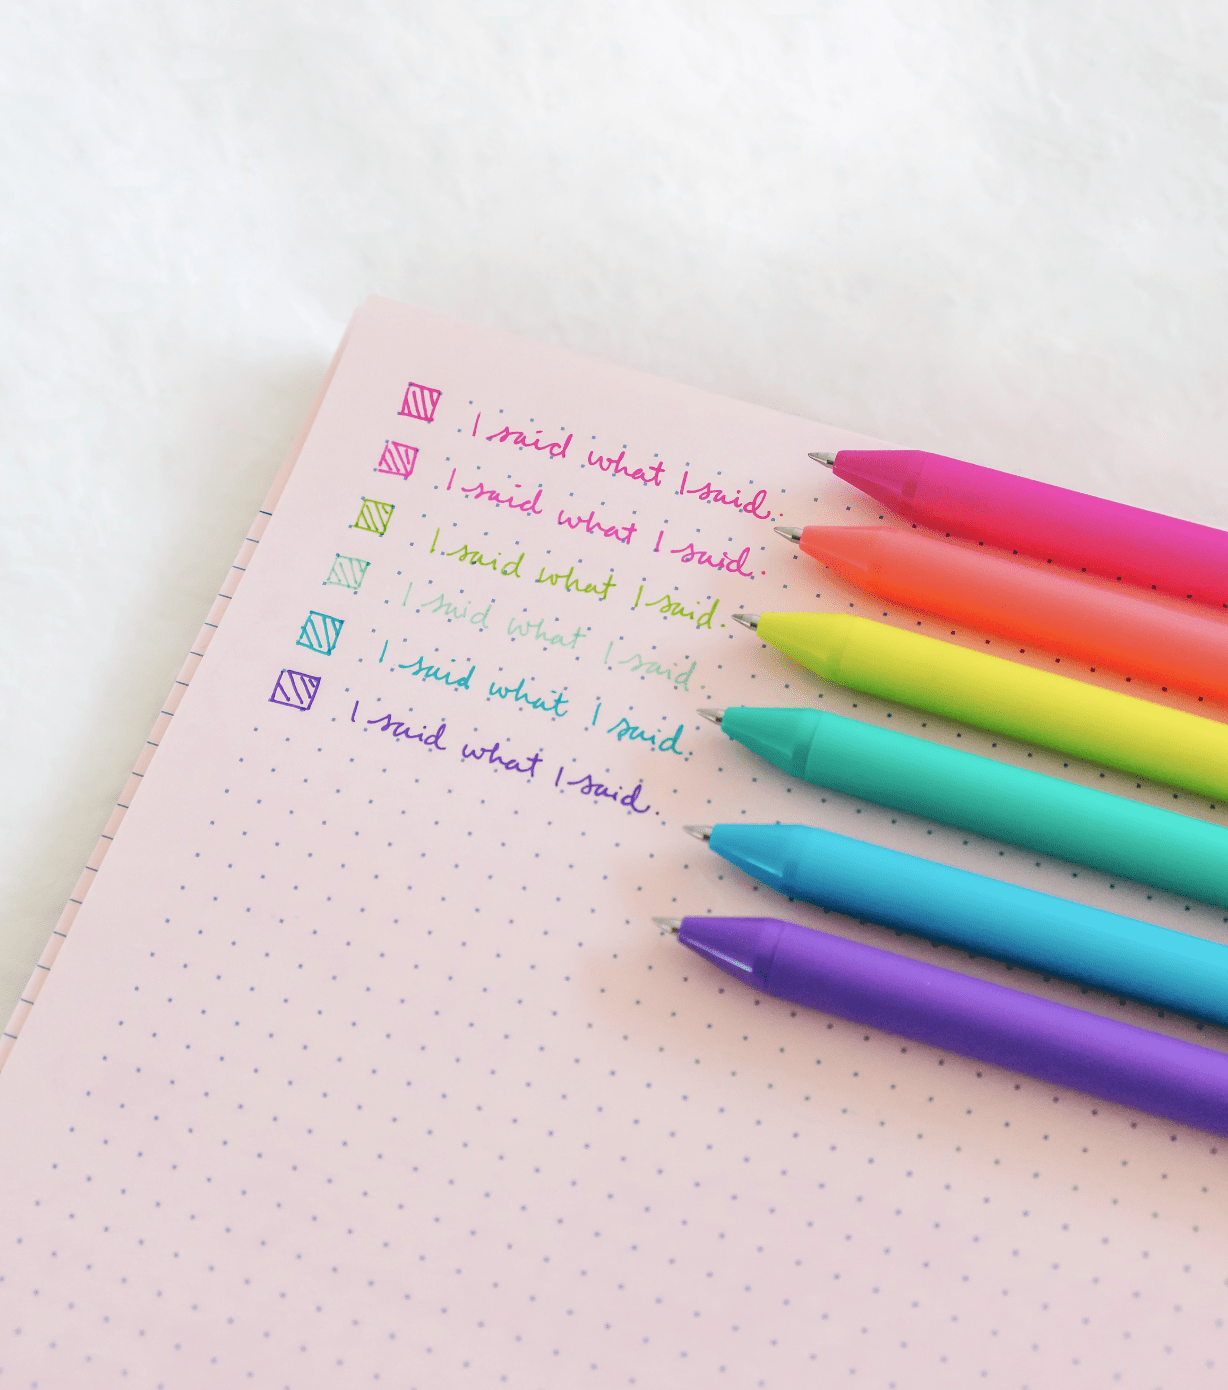 I said what I said.
I said what I said.
I said what I said.
I said what I said.
I said what I said.
I said what I said.